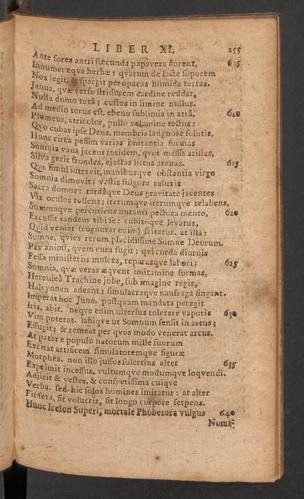 LIBER XI. 255
Ante fores antri fœcunda papavera florent, 605
Innumeræque herbæ: quarum de lacte soporem
Nox legit, & spargit per opacas humida terras.
Janua, quæ verso stridorem cardine reddat,
Nulla domo tota; custos in limine nullus.
Ad medio torus est, ebeno sublimis in atra, 610
Plumeus, atricolor, pullo velamine tectus:
Quo cubat ipse Deus, membris languore solutis.
Hunc circa passim varias imitantia formas
Somnia vana jacent totidem, quot messis aristas,
Silva gerit frondes, ejectas littus arenas. 615
Quo simul intravit, manibusque obstantia virgo
Somnia dimovit: vestis fulgore reluxit
Sacra domus: tardaque Deus gravitate jacentes
Vix oculos tollens; iterumque iterumque relabens,
Summaque percutiens nutanti pectora mento, 620
Excussit tandem sibi se: cubitoque levatus,
Quid veniat (cognorat enim) scitatur. at illa:
Somne, quies rerum, placidissime Somne Deorum,
Pax animi, quem cura fugit; qui corda diurnis
Fessa ministeriis mulces, reparasque labori; 625
Somnia, quæ veras æquent imitamine formas,
Herculea Trachine jube, sub imagine regis,
Halcyonen adeant; simulacraque naufraga fingant.
Imperat hoc Juno. postquam mandata peregit
Iris, abit. neque enim ulterius tolerare vaporis 630
Vim poterat. labique ut Somnum sensit in artus;
Effugit; & remeat per quos modo venerat arcus.
At pater e populo natorum mille suorum
Excitat artificem simulatoremque figuræ
Morphea. non illo jussos solertius alter 635
Exprimit incessus, vultumque modumque loquendi.
Adjicit & vestes, & consuetissima cuique
Verba. sed hic solos homines imitatur: at alter
Fit fera, fit volucris, fit longo corpore serpens.
Hunc Icelon Superi, mortale Phobetora vulgus 640
Nomi-